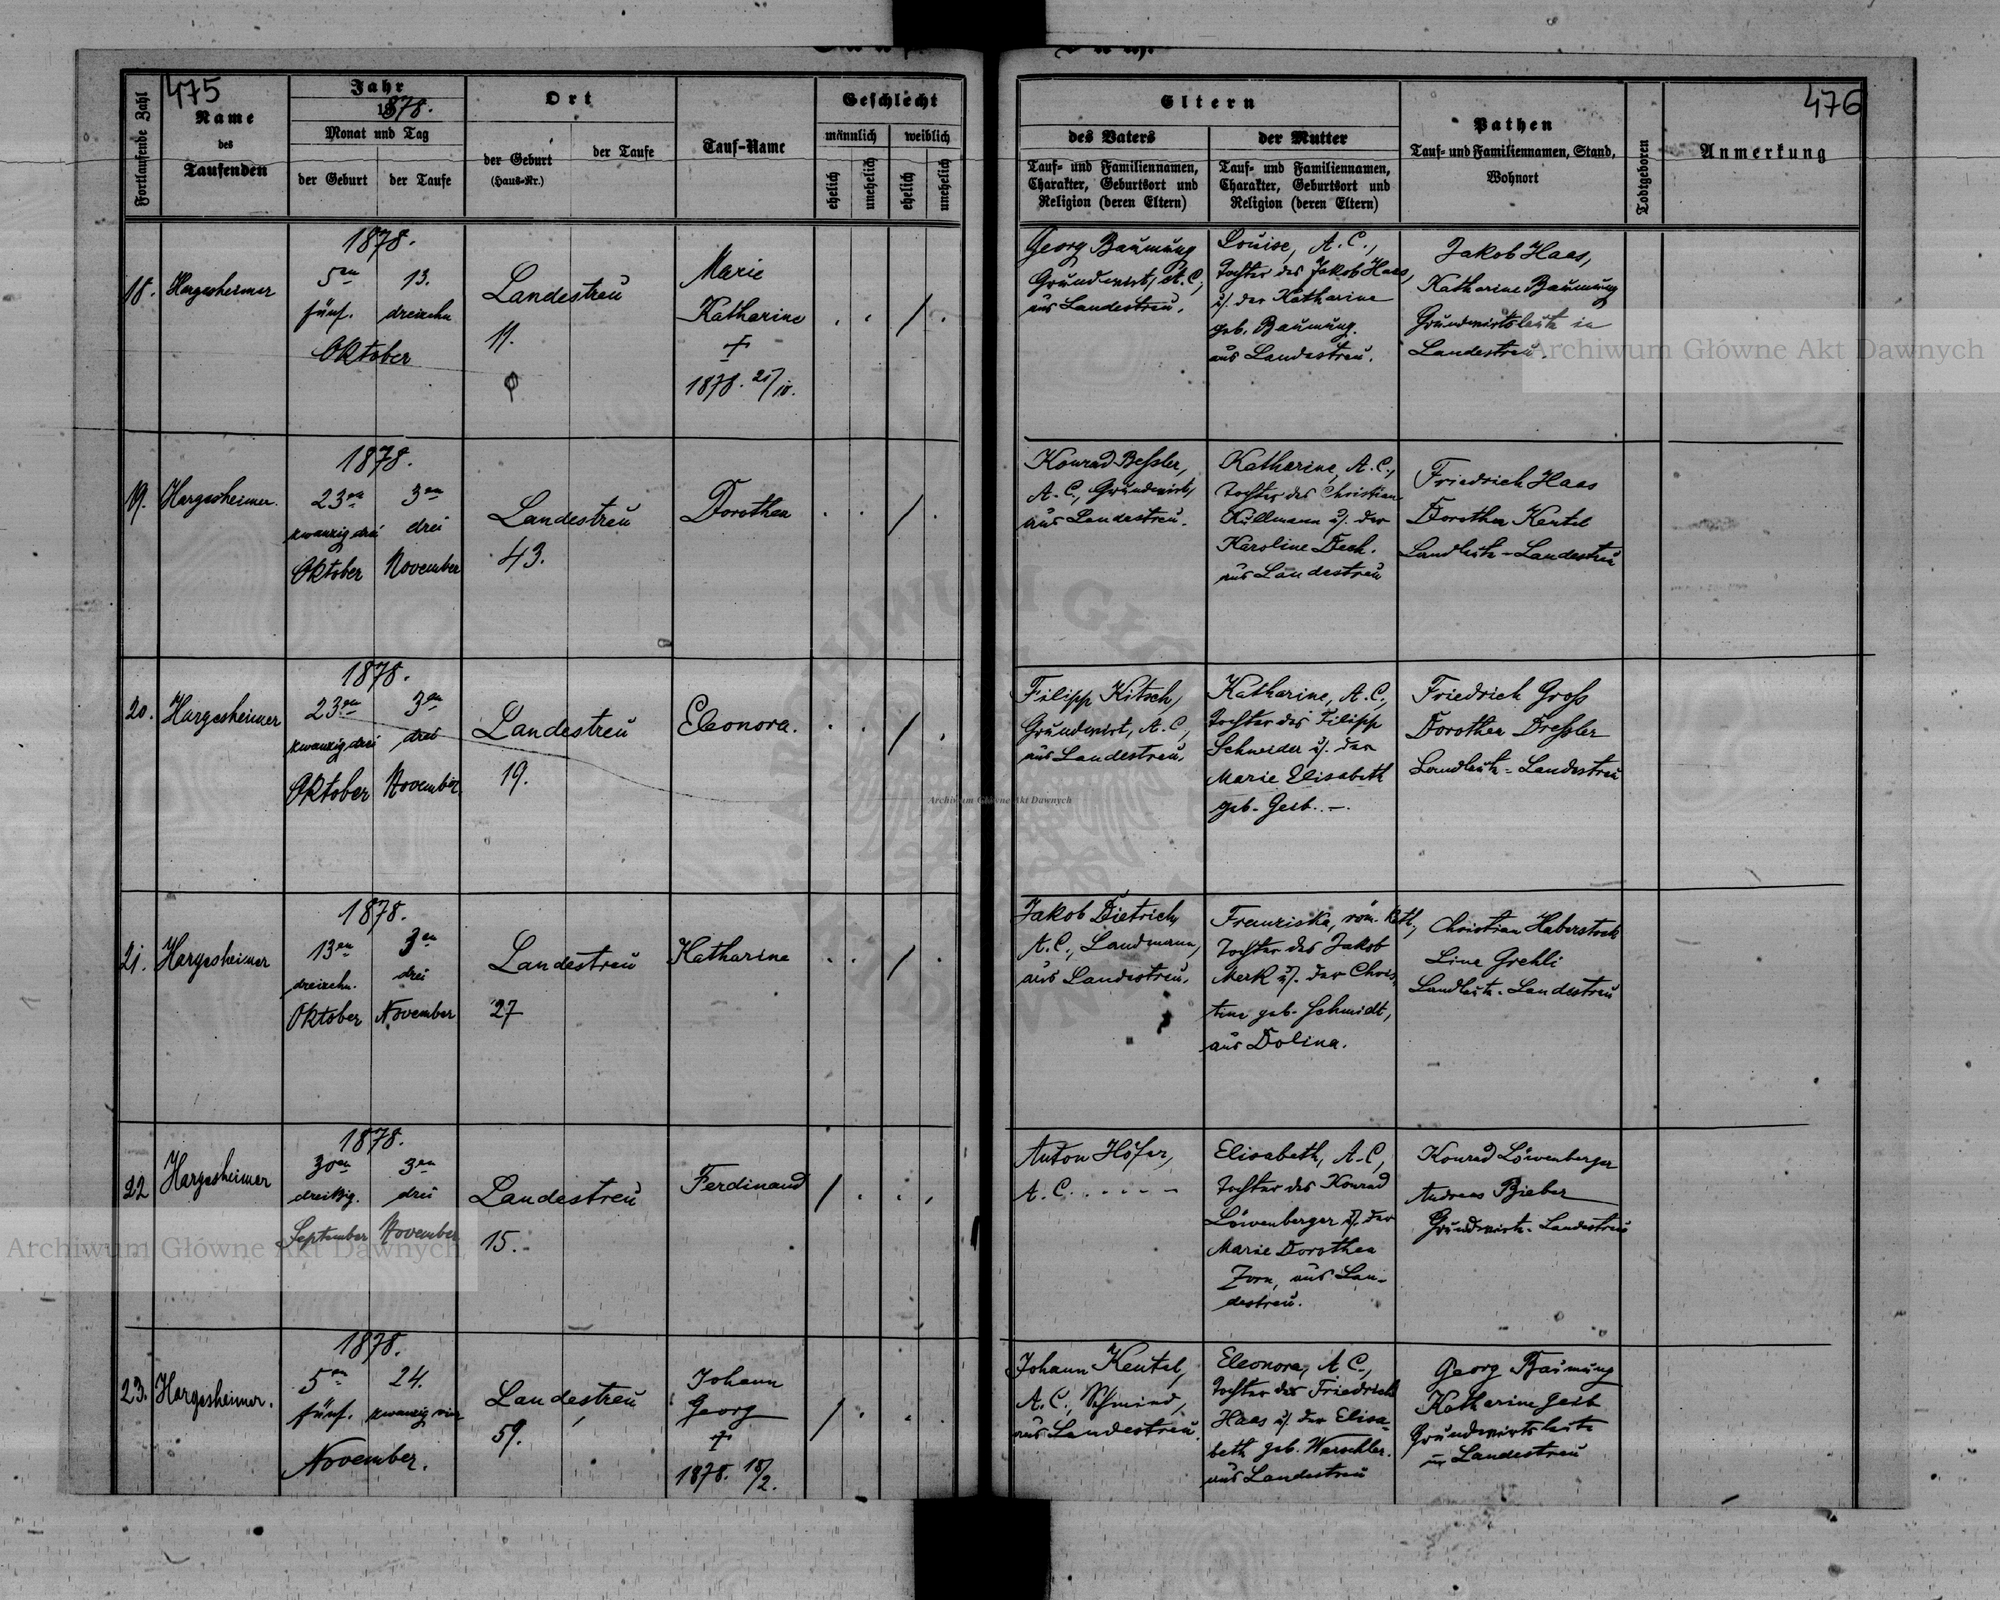 475
476
Fortlaufende Zahl
Name
des
Taufenden
Jahr
1878.
Monat und Tag
der Geburt
der Taufe
Ort
der Geburt
(Haus-Nr.)
der Taufe
Tauf-Name
Geschlecht
männlich
weiblich
ehelich
unehelich
ehelich
unehelich
Eltern
des Vaters
Tauf- und Familiennamen,
Charakter, Geburtsort und
Religion (deren Eltern)
der Mutter
Tauf- und Familiennamen,
Charakter, Geburtsort und
Religion (deren Eltern)
Pathen
Tauf- und Familiennamen, Stand,
Wohnort
Todtgeboren
Anmerkung
18.
Hargesheimer
1878.
5en
fünf.
13.
dreizehn
Oktober
Landestreu
11.
Marie
Katharine
+
1878. 21/10.
Georg Baumung
Grundwirt, A.C.,
aus Landestreu.
Louise, A.C.,
Tochter des Jakob Haas,
u. der Katharine
geb. Baumung.
aus Landestreu.
Jakob Haas,
Katharine Baumung
Grundwirtsleute in
Landestreu.
19.
Hargesheimer.
1878.
23en
zwanzig drei
Oktober
3en
drei
November
Landestreu
43.
Dorothea
Konrad Beßler,
A.C., Grundwirt,
aus Landestreu.
Katharine, A.C.,
Tochter des Christian
Kullmann u. der
Karoline Dech.
aus Landestreu
Friedrich Haas
Dorothea Keutel
Landleute - Landestreu
20.
Hargesheimer
1878.
23en
zwanzig drei
Oktober
3en
drei
November
Landestreu
19.
Eleonora.
Filipp Kitsch,
Grundwirt, A.C.,
aus Landestreu.
Katharine, A.C.,
Tochter des Filipp
Schneider u. der
Marie Elisabeth
geb. Geib. -.
Friedrich Groß
Dorothea Dreßler
Landleute - Landestreu
21.
Hargesheimer
1878.
13en
dreizehn.
Oktober
3en
drei
November
Landestreu
27
Katharine
Jakob Dietrich,
A.C., Landmann,
aus Landestreu.
Franziska, röm. kath.,
Tochter des Jakob
Merk u. der Chris-
tine geb. Schmidt,
aus Dolina.
Christian Haberstock
Line Grehli
Landleute - Landestreu
22
Hargesheimer
1878.
30en
dreißig.
September
3en
drei
November
Landestreu
15.
Ferdinand
Anton Höfer,
A.C. . . . . - -
Elisabeth, A.C.,
Tochter des Konrad
Löwenberger u. der
Marie Dorothea
Zorn, aus Lan-
destreu.
Konrad Löwenberger
Andreas Bieber
Grundwirte - Landestreu
23.
Hargesheimer.
1878.
5en
fünf.
24.
zwanzig vier
November.
Landestreu
59.
Johann
Georg
+
1878. 18/2.
Johann Keutel,
A.C., Schmied,
aus Landestreu.
Eleonora, A.C.,
Tochter des Friedrich
Haas u. der Elisa-
beth geb. Warschler.
aus Landestreu
Georg Baumung
Katharine Geib
Grundwirtsleute
in Landestreu
Archiwum Główne Akt Dawnych
Archiwum Główne Akt Dawnych
Archiwum Główne Akt Dawnych